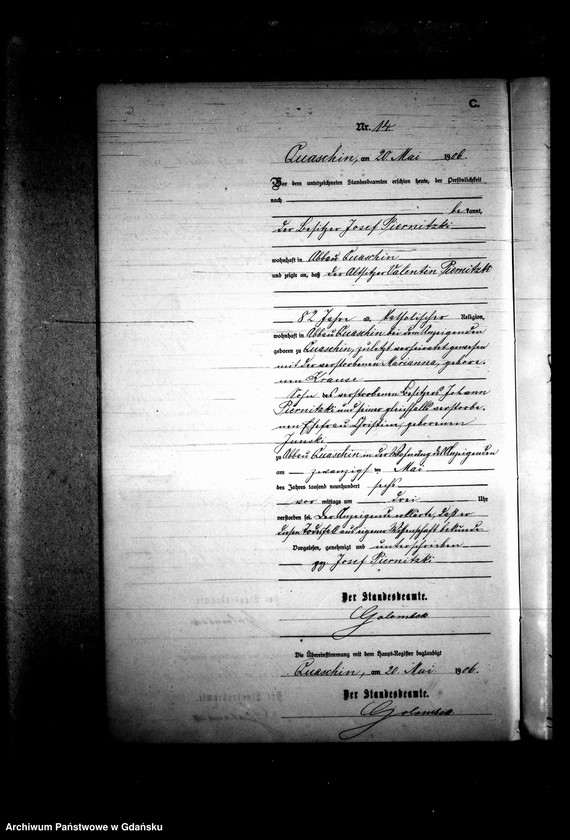 C.
Nr. 14
Quaschin, am 20 Mai 1906.
Vor dem unterzeichneten Standesbeamten erschien heute, der Persönlichkeit
nach
be kannt,
der Besitzer Josef Piernitzki
wohnhaft in Abbau Quaschin
und zeigte an, daß der Altsitzer Valentin Piernitzki
82 Jahre a, katholischer Religion,
wohnhaft in Abbau Quaschin bei dem Anzeigenden
geboren zu Quaschin, zuletzt verheiratet gewesen
mit der verstorbenen Marianna, gebore-
nen Krause
Sohn des verstorbenen Besitzers Johann
Piernitzki und seiner gleichfalls verstorbe-
nen Ehefrau Christine, geborenen
zu Abbau Quaschin in der Wohnung des Anzeigenden
am zwanzigsten Mai
des Jahres tausend neunhundert sechs
vor mittags um drei Uhr
verstorben sei. Der Anzeigende erklärte, daß er
diesen Todesfall aus eigener Wissenschaft bekunde
Vorgelesen, genehmigt und unterschrieben
gez Josef Piernitzki
Der Standesbeamte.
Golombek
Die Übereinstimmung mit dem Haupt-Register beglaubigt
Quaschin, am 20. Mai 1906.
Der Standesbeamte.
Golombek
Archiwum Państwowe w Gdańsku